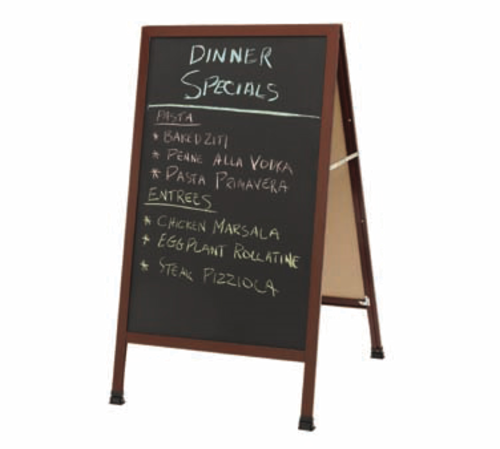 DINNER
SPECIALS
PASTA
* BAKED ZITI
* PENNE ALLA VODKA
* PASTA PRIMAVERA
ENTREES
* CHICKEN MARSALA
* EGGPLANT ROLLATINE
* STEAK PIZZIOLA